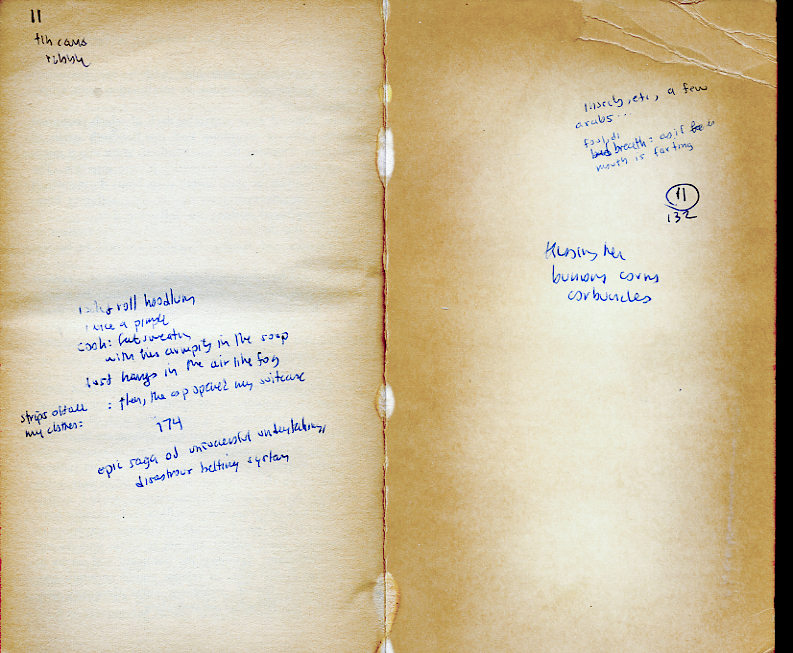 11
tin cans
insects, etc, a few
arabs...
foul, di
bad breath: as if
mouth is farting
11
132
her
bunions corns
carbuncles
rock & roll hoodlum
a pimple
cook: fat, sweaty
with his armpits in the soup
lust hangs in the air like fog
strips off all : then, the cop opened my suitcase
my clothes:
174
epic saga of unsuccessful undertakings
disastrous betting system